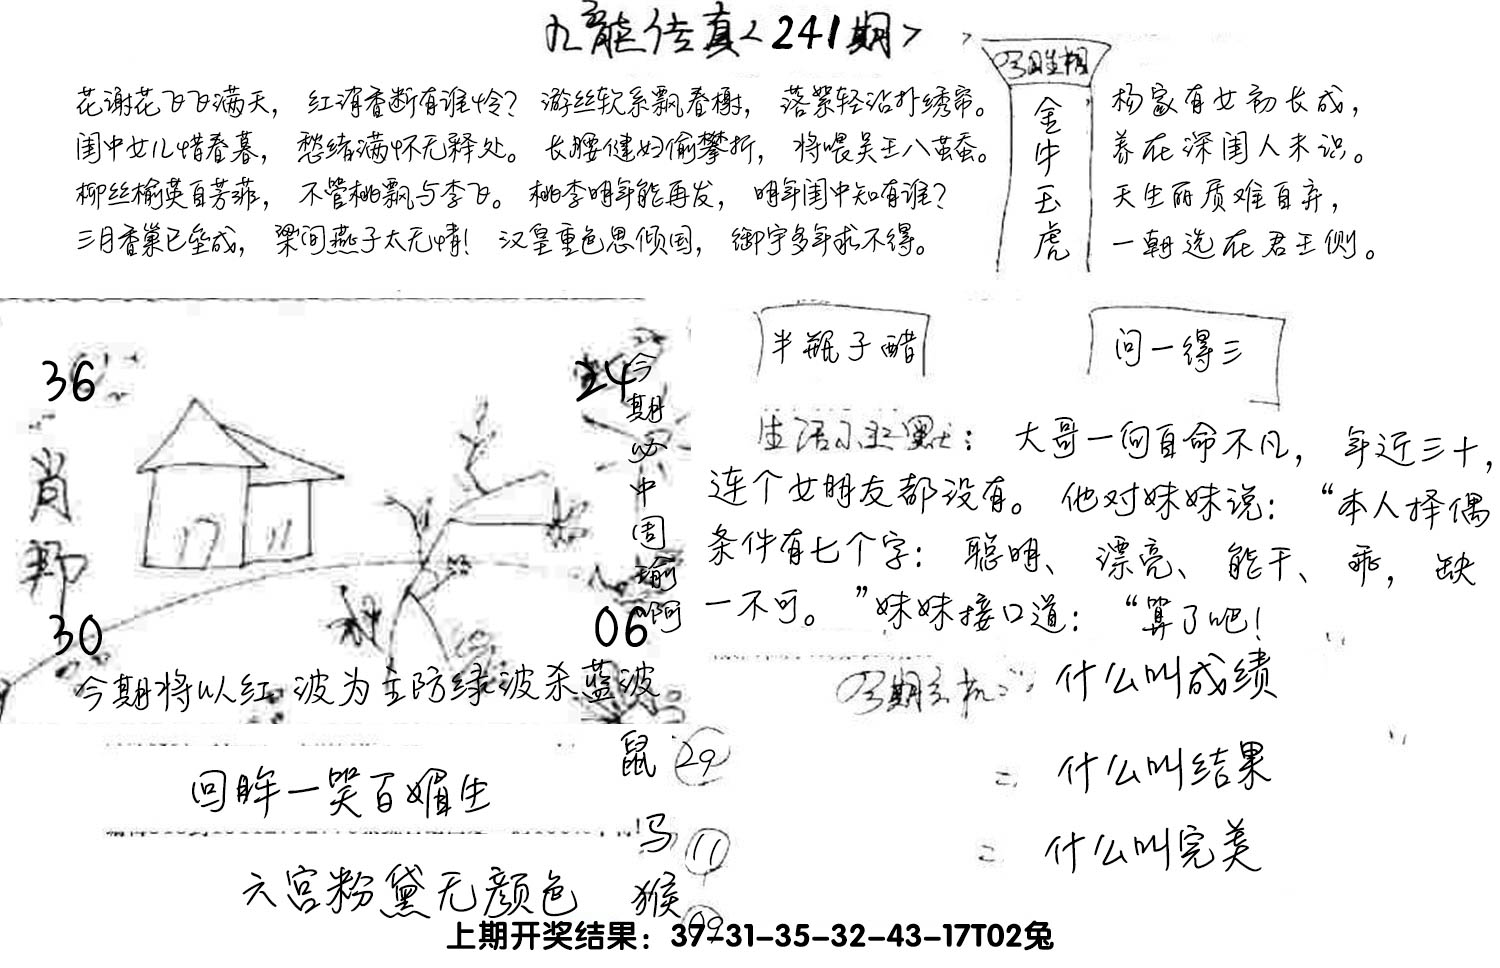 九龙传真<241期>
花谢花飞飞满天，红消香断有谁怜？游丝软系飘春榭，落絮轻沾扑绣帘。
闺中女儿惜春暮，愁绪满怀无释处。长腰健妇偷攀折，将喂吴王八茧蚕。
柳丝榆荚自芳菲，不管桃飘与李飞。桃李明年能再发，明年闺中知有谁？
三月香巢已垒成，梁间燕子太无情！汉皇重色思倾国，御宇多年求不得。
金牛玉虎
杨家有女初长成，
养在深闺人未识。
天生丽质难自弃，
一朝选在君王侧。
36
24
肖
30
06
今期必中周瑜啊
今期将以红波为主防绿波杀蓝波
半瓶子醋
问一得三
生活小幽默：大哥一向自命不凡，年近三十，
连个女朋友都没有。他对妹妹说：“本人择偶
条件有七个字：聪明、漂亮、能干、乖，缺
一不可。”妹妹接口道：“算了吧！
什么叫成绩
二 什么叫结果
二 什么叫完美
回眸一笑百媚生
六宫粉黛无颜色
鼠 29
马 11
猴 09
上期开奖结果：37-31-35-32-43-17T02兔